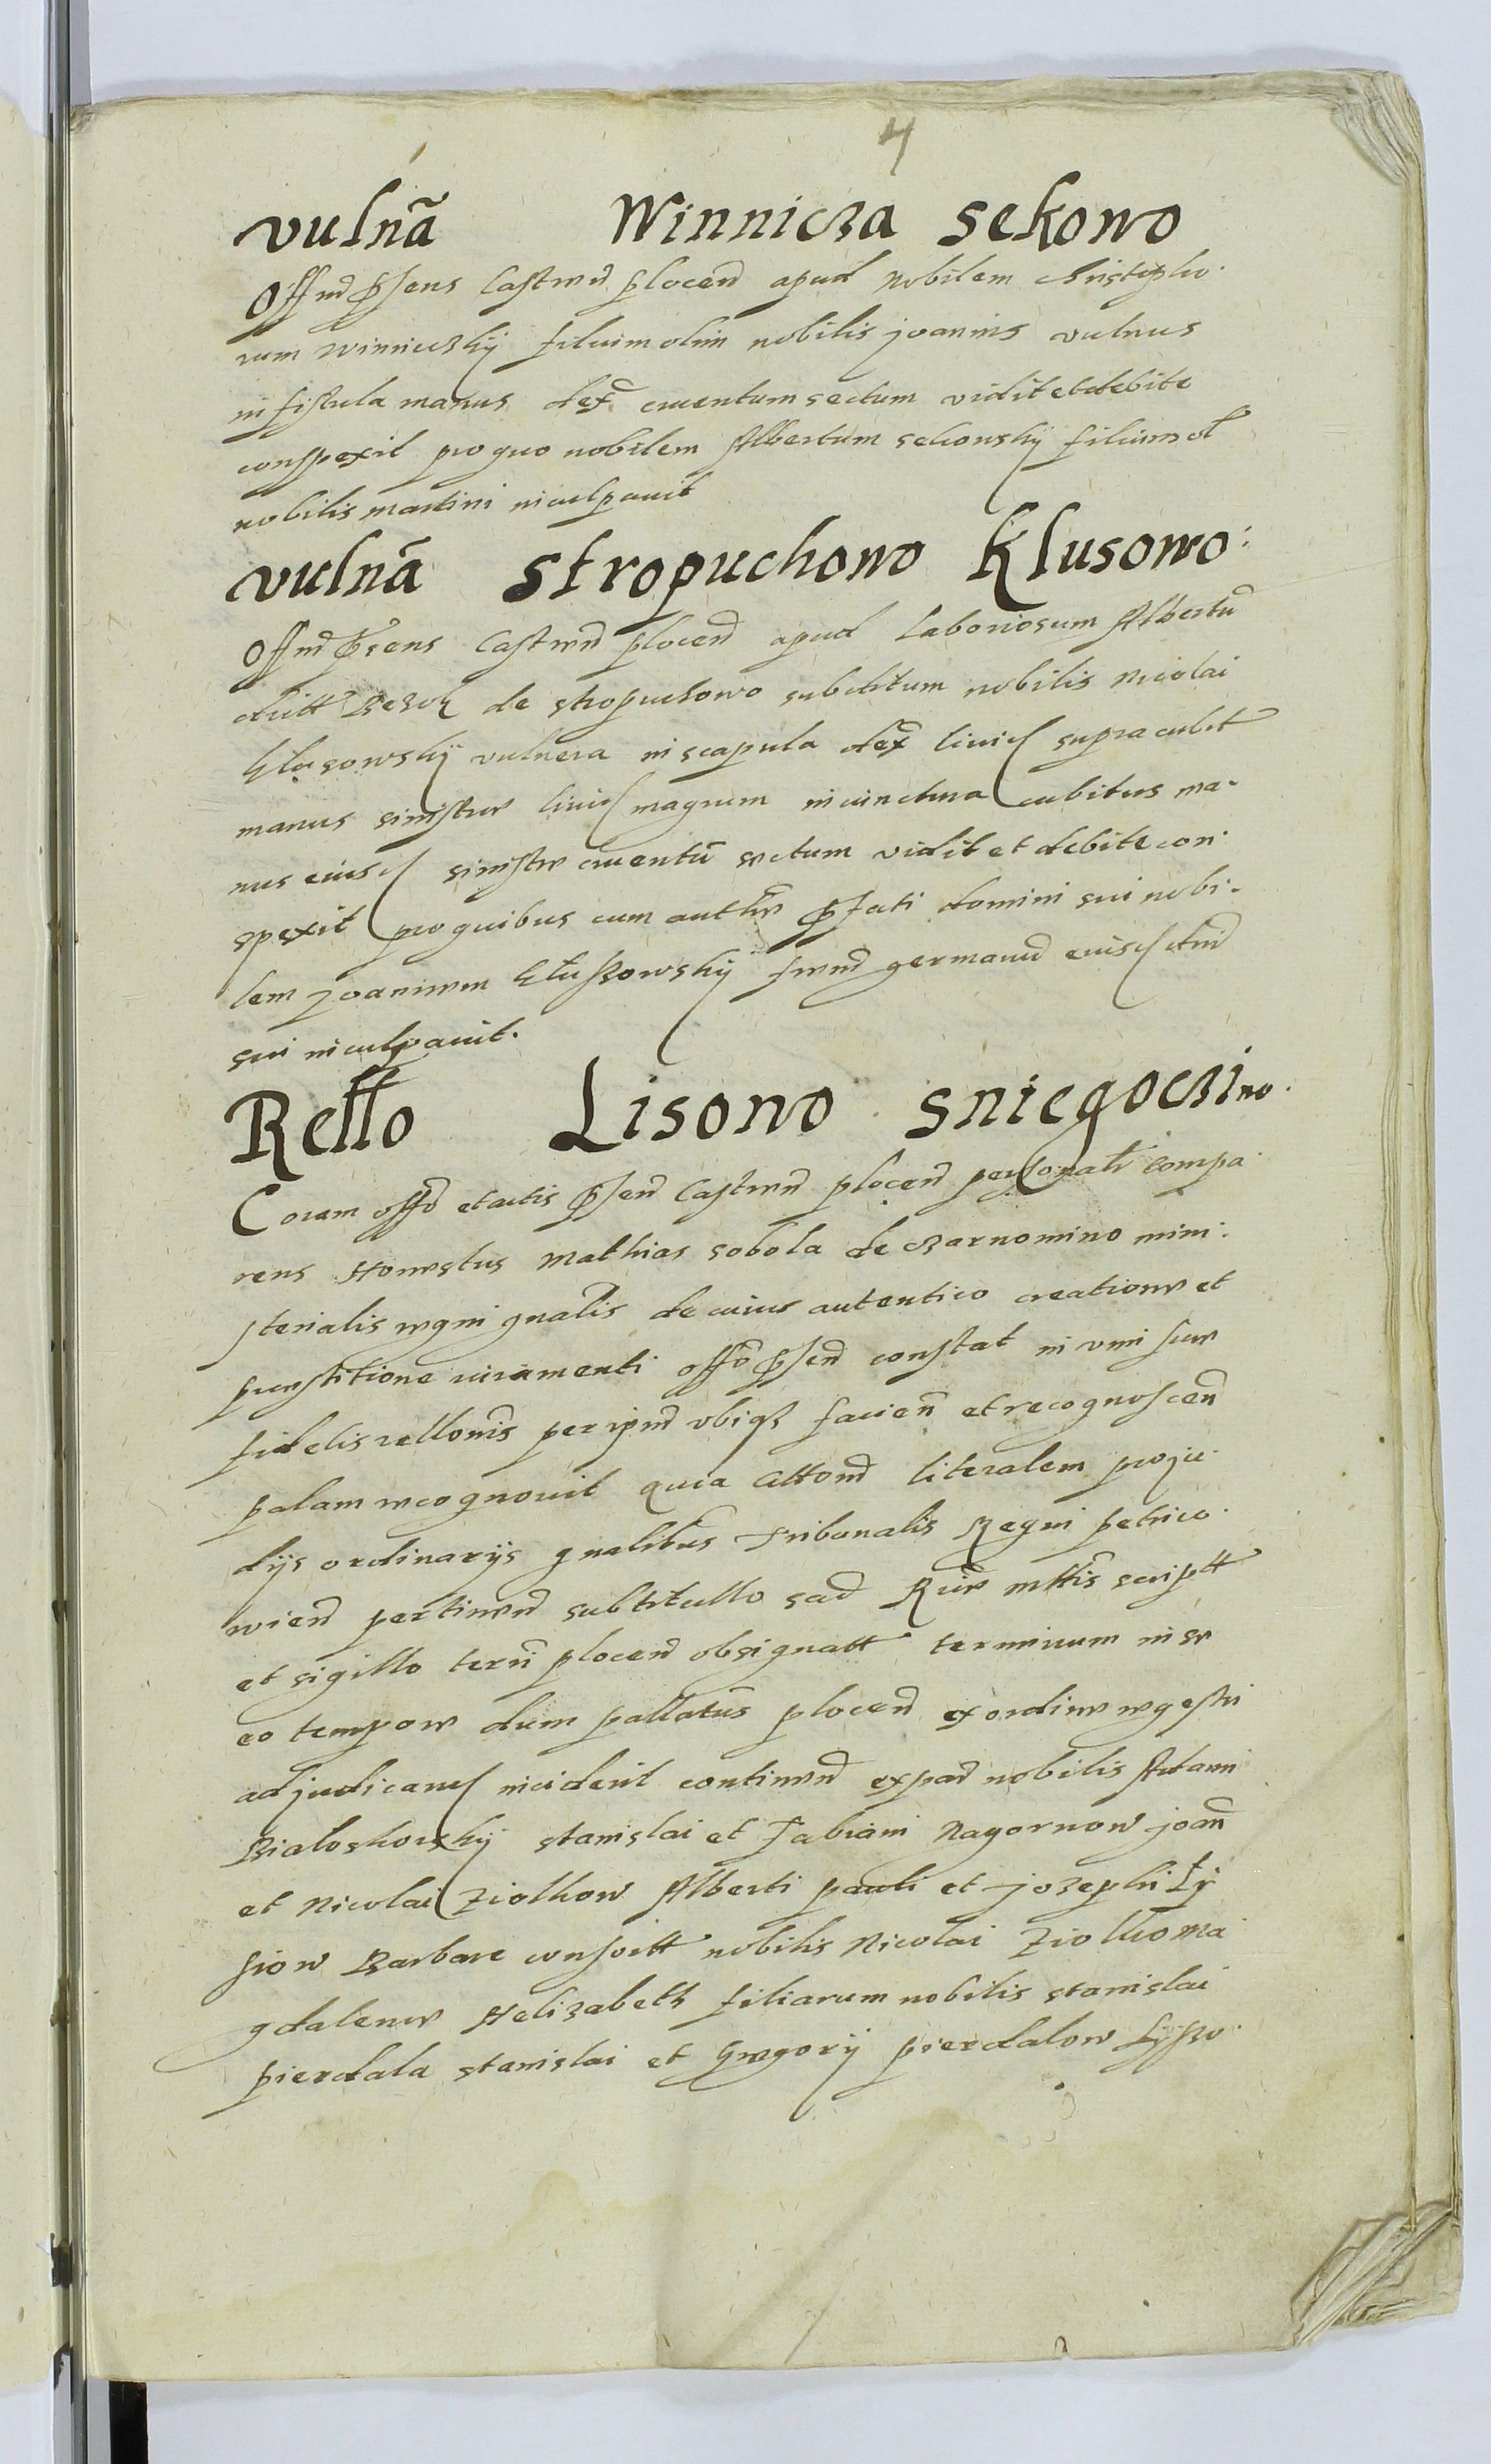 4
vulnã Winnicza sekowo
Offm̃ p̃sens Castren̄ plocen̄ apud Nobilem Christopho-
rum Winniczkij filium olim nobilis joannis vulnus
in fistula manus dex̃ cruentum sectum vidit et debite
conspexit pro quo nobilem Albertum sekowskij filium ol̃
nobilis martini inculpauit
vulnã Stropuchowo Klusowo:
Offm̃ p̃sens Castren̄ plocen̄ apud Laboriosum Albertũ
dictt de stropuchowo subditum nobilis Nicolai
klusowskij vulnera in scapula dex̃ liuid supra cubit
manus sinistre liuid magnum in iunctura cubitus ma-
nus eiusd sinistre cruentũ sectum vidit et debite con-
spexit pro quibus cum auth̃e p̃fati domini sui nobi-
lem joannem kłussowskij frem̃ germanũ eiusd dñi
sui inculpauit.
Rello Lisowo sniegoczino.
Coram offõ et actis p̃sen̄ Castren̄ plocen̄ personalr̃ compa-
rens Honestus Mathias sobola de czarnomino mini-
sterialis regni gnalis̃ de cuius autentico creatione et
prestitione iuramenti offõ p̃sen̄ constat in vim sue
fidelis rellonis̃ per ipm̃ vbiq3 facien̄ et recognoscen̄
palam recognouit quia Cittom̃ literalem pro ju-
dijs ordinarijs gnalibus̃ Tribunalis Regni petrico-
wien̄ pertinen̄ sub titullo sac̃ Rũe mttis̃ scriptt
et sigillo terrĩ plocen̄ obsignatt terminum in se
eo tempore dum pallatus̃ plocen̄ ex ordine regestri
adjudicand inciderit continen̄ ex par̃ nobilis Adami
Bialoskorskij stanislai et Fabiani Nagornow joañ
et Nicolai Ziolkow Alberti pauli et jozephi Ły
siow Barbare consortt nobilis Nicolai Ziolko Ma
gdalene Helizabeth filiarum nobilis stanislai
pierdala stanislai et Gregorij pierdalow Lysso-